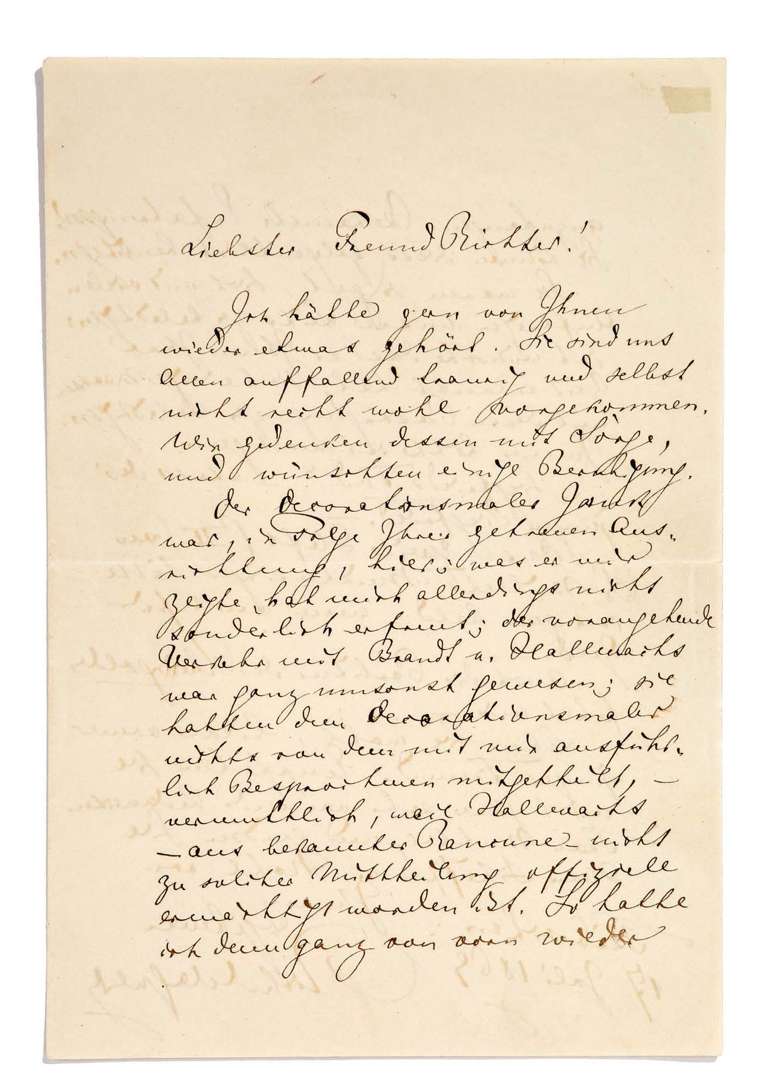 Liebster Freund Richter!
Ich hätte gern von Ihnen
wieder etwas gehört. Sie sind uns
Allen auffallend traurig und selbst
nicht recht wohl vorgekommen.
Wir gedenken dessen mit Sorge,
und wünschten einige Beruhigung.
Der Decorationsmaler Jank
war, in Folge Ihrer getreuen Aus-
richtung, hier; was er mir
zeigte, hat mich allerdings nicht
sonderlich erfreut; der vorangehende
Verkehr mit Brandt u. Hallwachs
war ganz umsonst gewesen; sie
hatten dem Decorationsmaler
nichts von dem mit mir ausführ-
lich Besprochenen mitgetheilt, –
vermuthlich, weil Hallwachs
– aus bekannter Rancune – nicht
zu solcher Mittheilung offiziell
ermächtigt worden ist. So hatte
ich denn ganz von vorn wieder